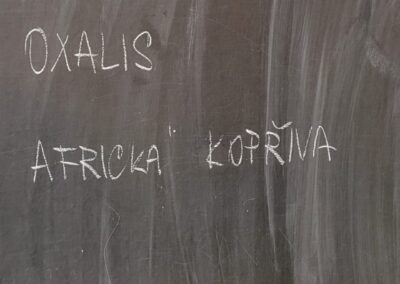 OXALIS
AFRICKÁ KOPŘIVA